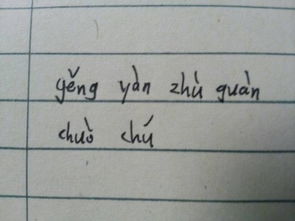 yěng yàn zhù guàn
chuò chú